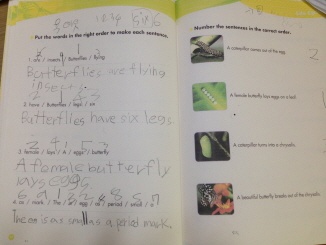 Put the words in the right order to make each sentence.
1. are / insects / Butterflies / flying
Butterflies are flying
insects.
2. have / Butterflies / legs / six
Butterflies have six legs
3. female / lays / A / eggs / butterfly
A female butterfly
lays eggs.
as / mark / The / egg / as / period / small / is
There is as small as a period mark.
Number the sentences in the correct order.
A caterpillar comes out of the egg.
2
A female butterfly lays eggs on a leaf.
A caterpillar turns into a chrysalis.
A beautiful butterfly breaks out of the chrysalis.